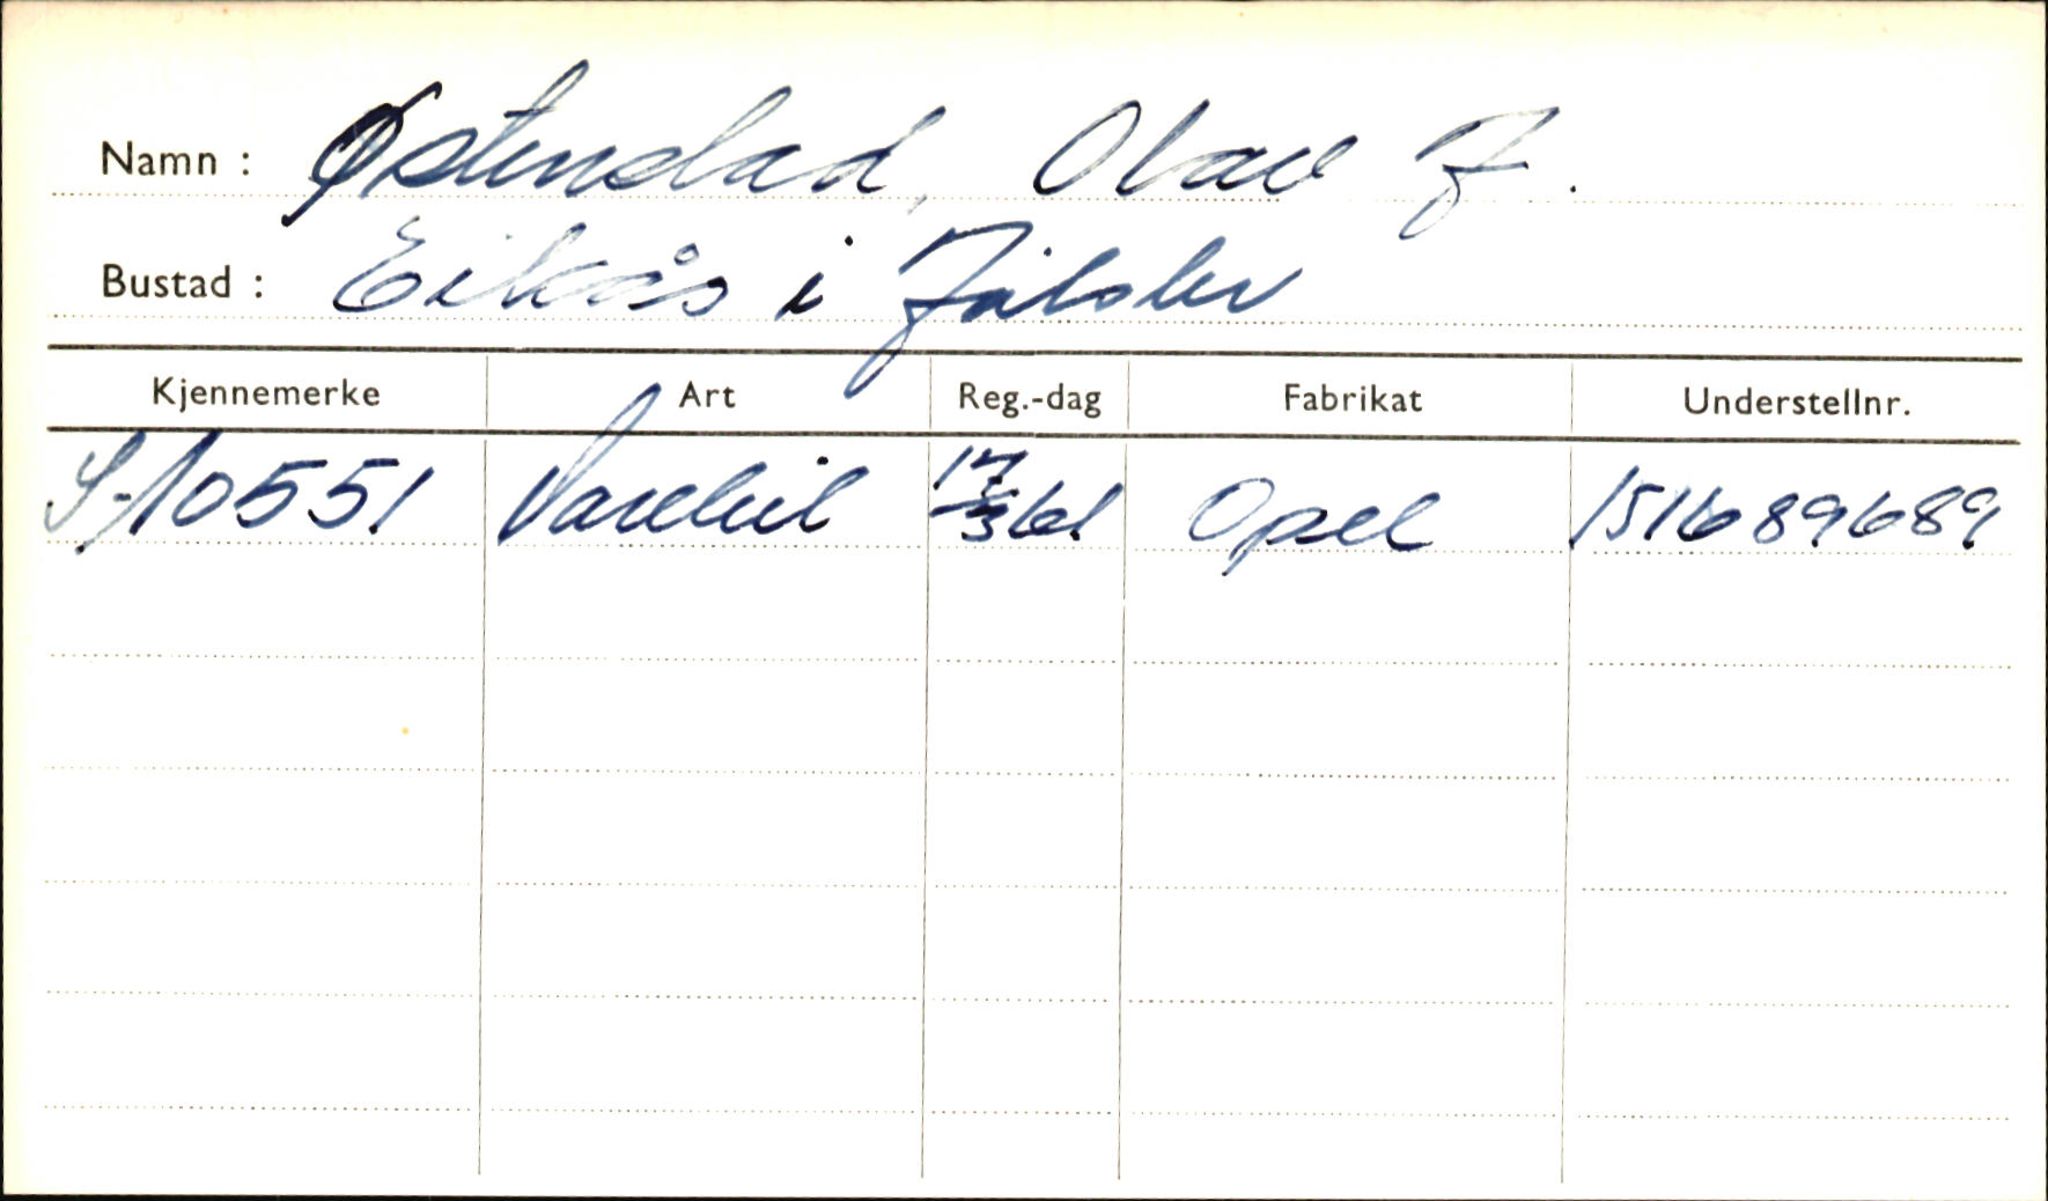 Namn : Østenstad, Olav J.
Bustad : Eikås i Jølster
Kjennemerke Art Reg.-dag Fabrikat Understellnr.
S-10551 Varebil 17/3 61 Opel 151689689